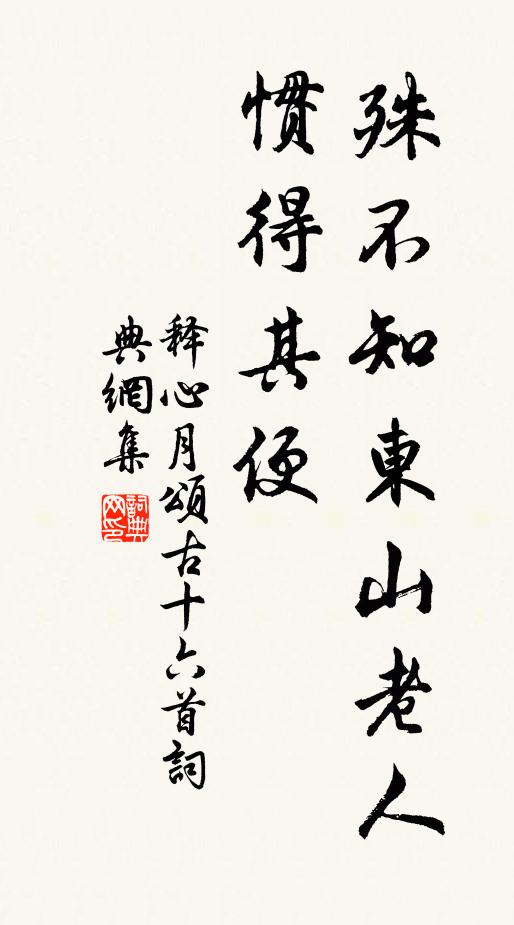 殊不知東山老人
慣得其便
释心月頌古十六首詞
典網集
詞典
网印